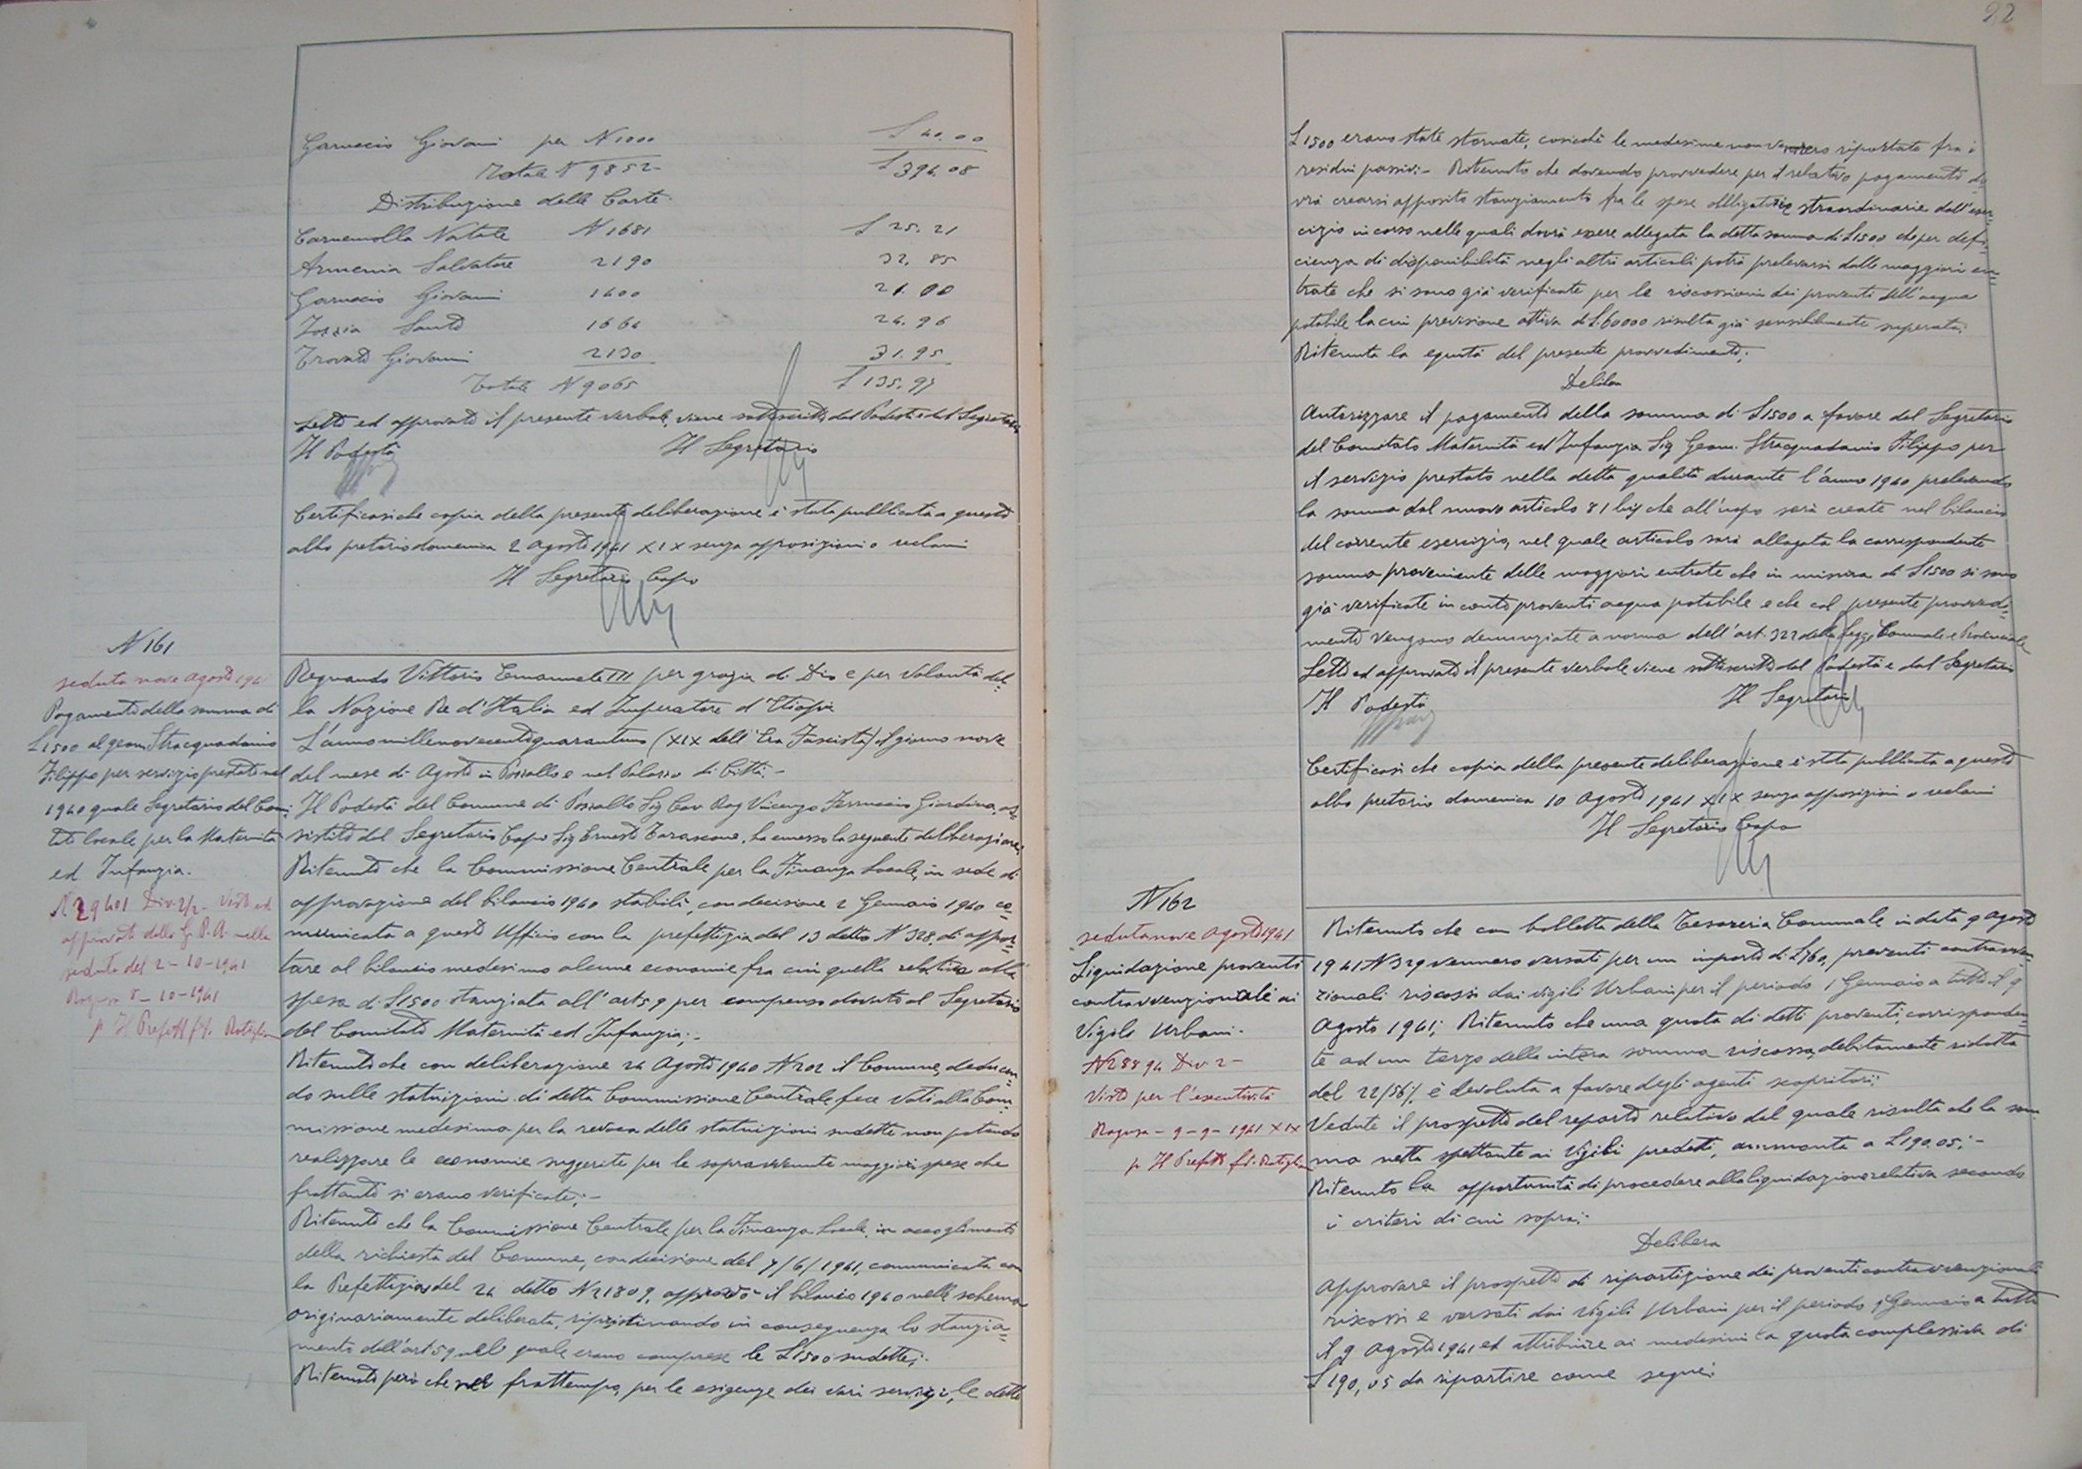 Garuccio Giovanni per N 1000 £ 40.00
Totale N 9852 £ 394.08
Distribuzione delle Carte
Carnemolla Natale N 1681 £ 25.21
Armenia Salvatore 2190 32.85
Garuccio Giovanni 1400 21.00
Santo 1664 24.96
Trovato Giovanni 2130 31.95
Totale N 9065 £ 135.97
Letto ed approvato il presente verbale, viene sottoscritto dal Podestà e dal Segretario
Il Podestà Il Segretario
Certificasi che copia della presente deliberazione è stata pubblicata a questo
albo pretorio domenica 2 agosto 1941 XIX senza opposizioni o reclami
Il Segretario Capo
N 161
seduta nove agosto 1941
Pagamento della somma di
£ 1500 al geom. Stracquadanio
Filippo per servizio prestato nel
1940 quale Segretario del Comi-
tato locale per la Maternità
ed Infanzia.
N 29401 Div. 2/2 - Visto ed
approvato dalla G.P.A. nella
seduta del 2-10-1941
Ragusa 8-10-1941
p. Il Prefetto f/to
Regnando Vittorio Emanuele III per grazia di Dio e per Volontà del-
la Nazione Re d'Italia ed Imperatore d'Etiopia
L'anno millenovecentoquarantuno (XIX dell'Era Fascista) il giorno nove
del mese di Agosto in Pozzallo e nel Palazzo di Città.-
Il Podestà del Comune di Pozzallo Sig. Cav. Rag. Vincenzo Ferruccio Giardina, as-
sistito dal Segretario Capo Sig. Ernesto Tarascone, ha emesso la seguente deliberazione:
Ritenuto che la Commissione Centrale per la Finanza Locale, in sede di
approvazione del bilancio 1940 stabilì, con decisione 2 Gennaio 1940 co-
municata a questo Ufficio con la prefettizia del 13 detto N 328, di appor-
tare al bilancio medesimo alcune economie fra cui quella relativa alla
spesa di £ 1500 stanziata all'art. 59 per compenso dovuto al Segretario
del Comitato Maternità ed Infanzia;-
Ritenuto che con deliberazione 24 Agosto 1940 N 202 il Comune, deducen-
do sulle statuizioni di detta Commissione Centrale, fece voti alla Com-
missione medesima per la revoca delle statuizioni sudette non potendo
realizzare le economie suggerite per le sopravvenute maggiori spese che
frattanto si erano verificate;-
Ritenuto che la Commissione Centrale per la Finanza Locale, in accoglimento
della richiesta del Comune, con decisione del 7/6/1941, comunicata con
la Prefettizia del 24 detto N 21809, approvò il bilancio 1940 nello schema
originariamente deliberato, ripristinando in conseguenza lo stanzia-
mento dell'art. 59 nel quale erano comprese le £ 1500 sudette;-
Ritenuto però che nel frattempo, per le esigenze dei vari servizi, le dette
£ 1500 erano state stornate, cosicchè le medesime non vennero riportate fra i
residui passivi.- Ritenuto che dovendo provvedere per il relativo pagamento do-
vrà crearsi apposito stanziamento fra le spese obbligatorie straordinarie dell'eser-
cizio in corso nelle quali dovrà essere allegata la detta somma di £ 1500 che per defi-
cienza di disponibilità negli altri articoli potrà prelevarsi dalle maggiori en-
trate che si sono già verificate per le riscossioni dei proventi dell'acqua
potabile la cui previsione attiva di £ 60000 risulta già sensibilmente superata;
Ritenuta la equità del presente provvedimento;
Delibera
Autorizzare il pagamento della somma di £ 1500 a favore del Segretario
del Comitato Maternità ed Infanzia Sig. Geom. Stracquadanio Filippo per
il servizio prestato nella detta qualità durante l'anno 1940 prelevando
la somma dal nuovo articolo 81 bis che all'uopo sarà creato nel bilancio
del corrente esercizio, nel quale articolo sarà allogata la corrispondente
somma proveniente delle maggiori entrate che in misura di £ 1500 si sono
già verificate in conto proventi acqua potabile e che col presente provvedi-
mento vengono denunziate a norma dell'art. 322 della Legge Comunale e Provinciale
Letto ed approvato il presente verbale viene sottoscritto dal Podestà e dal Segretario
Il Podestà Il Segretario
Certificasi che copia della presente deliberazione è stata pubblicata a questo
albo pretorio domenica 10 agosto 1941 XIX senza opposizioni o reclami
Il Segretario Capo
N 162
seduta nove Agosto 1941
Liquidazione proventi
contravvenzionali ai
Vigili Urbani.
N 28894 Div 2-
Visto per l'esecutività
Ragusa - 9-9-1941 XIX
p. Il Prefetto f/to
Ritenuto che con bolletta della Tesoreria Comunale in data 9 agosto
1941 N 329 vennero versati per un importo di £ 760, proventi contravven-
zionali riscossi dai vigili Urbani per il periodo 1 Gennaio a tutto il 9
Agosto 1941; Ritenuto che una quota di detti proventi, corrisponden-
te ad un terzo della intera somma riscossa, debitamente ridotta
del 22/56%, è devoluta a favore degli agenti scopritori;
Veduto il prospetto del reparto relativo dal quale risulta che la som-
ma netta spettante ai Vigili predetti, ammonta a £ 190,05;-
Ritenuto la opportunità di procedere alla liquidazione relativa secondo
i criteri di cui sopra;
Delibera
Approvare il prospetto di ripartizione dei proventi contravvenzionali
riscossi e versati dai Vigili Urbani per il periodo 1 Gennaio a tutto
il 9 Agosto 1941 ed attribuire ai medesimi la quota complessiva di
£ 190,05 da ripartire come segue: